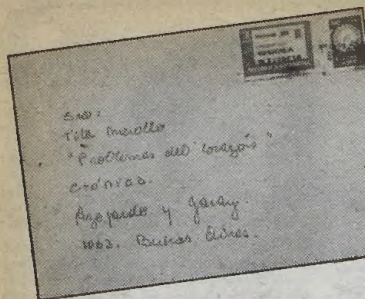 Sra:
Tita Merello
"Problemas del corazón"
Crónica.
Azopardo y Garay.
1063. Buenos Aires.